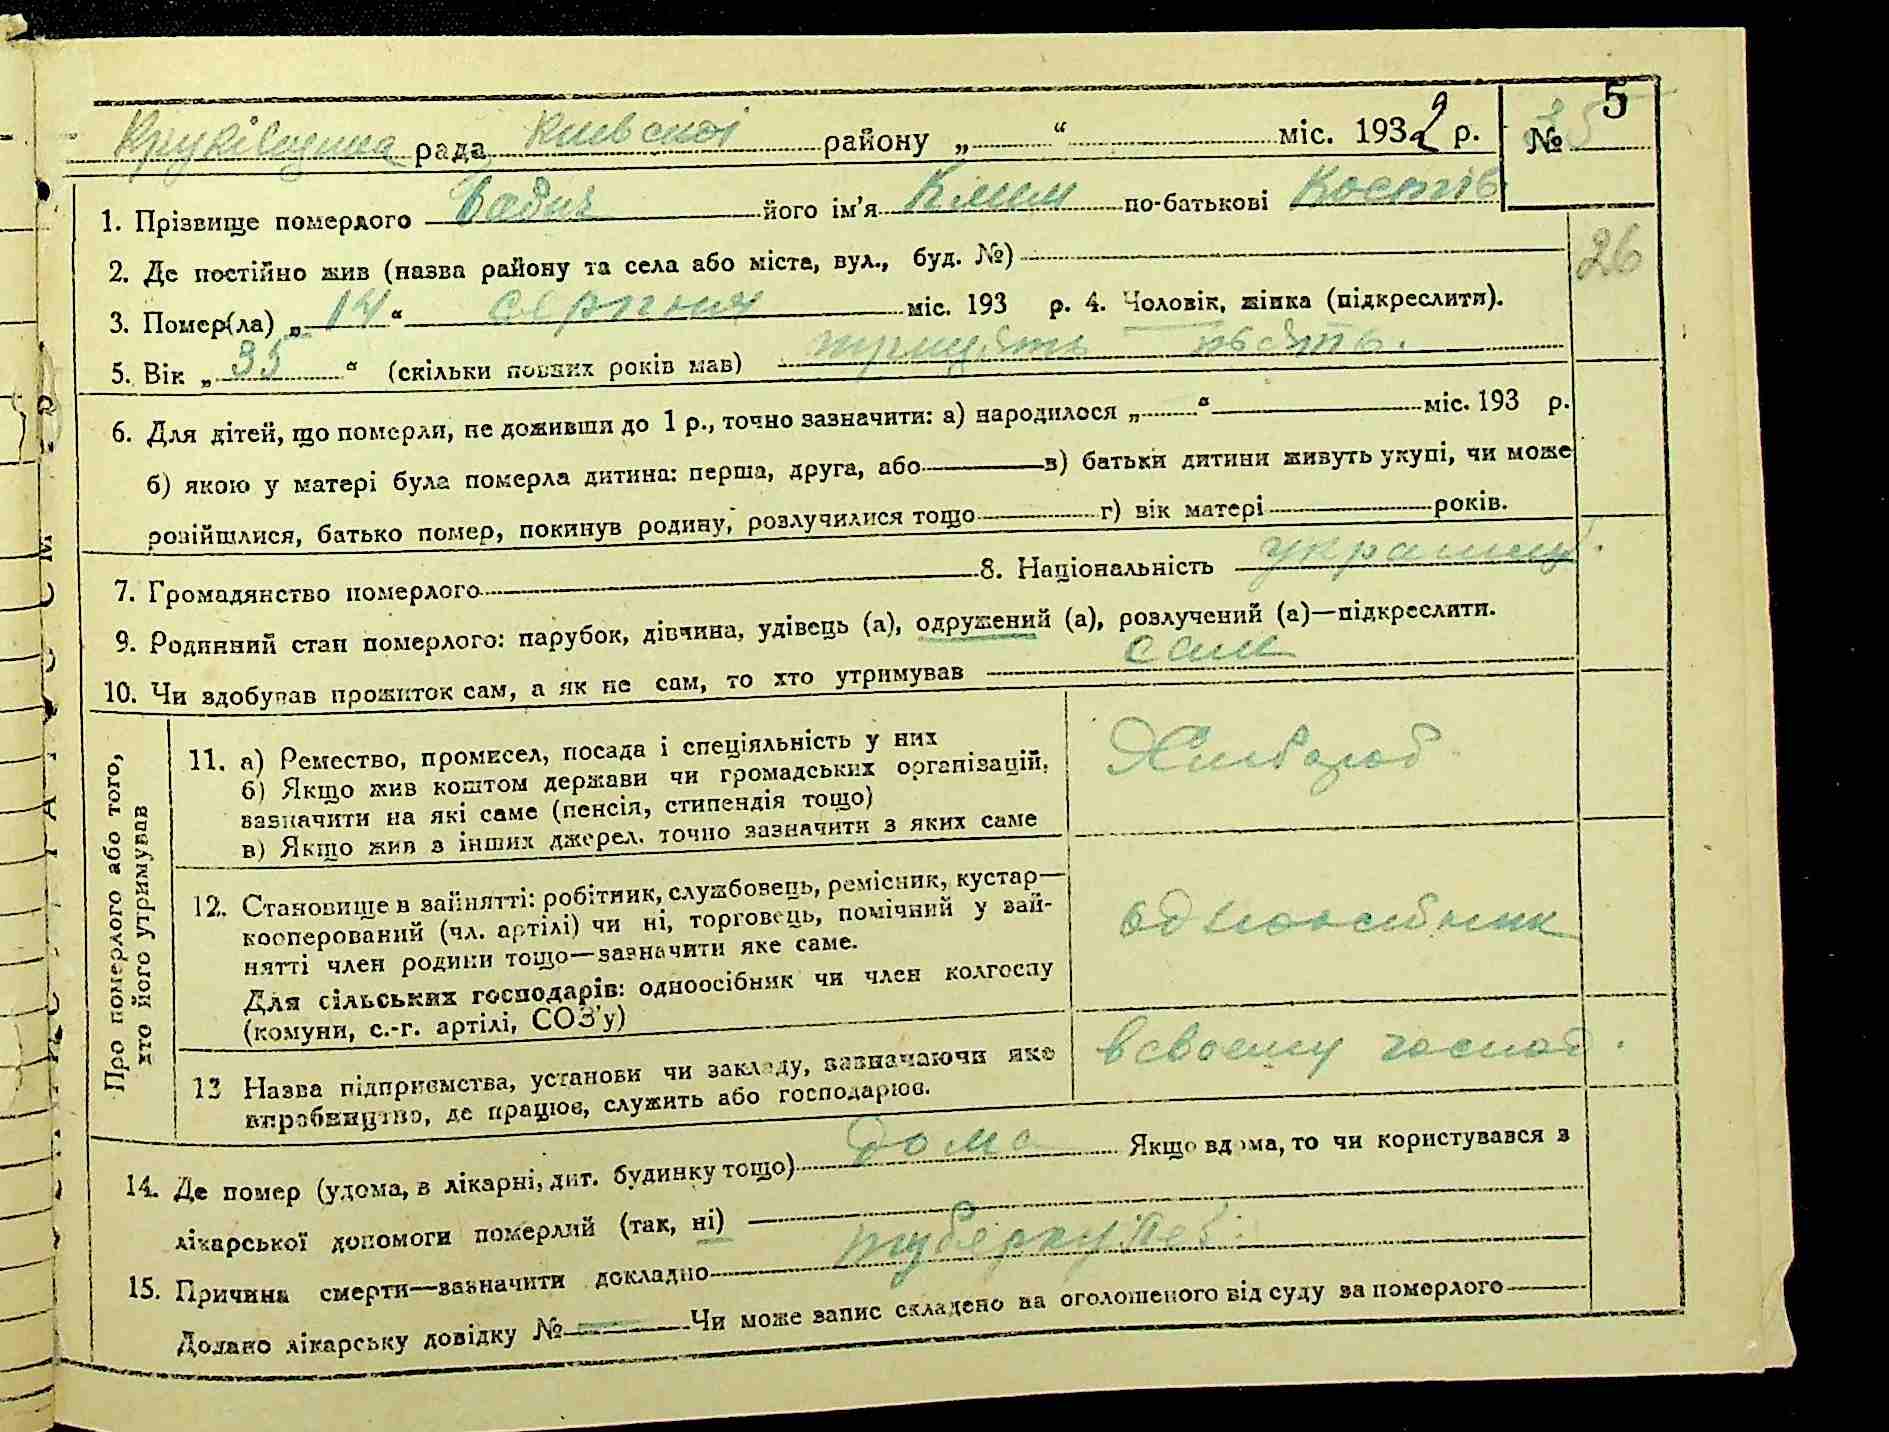 5
Круківщина рада Киевскої району „ “ міс. 1932 р. № 35
1. Прізвище померлого Бадич його ім’я Клим по-батькові Костів.
26
2. Де постійно жив (назва району та села або міста, вул., буд. №)
3. Помер(ла) „ 14 “ серпния міс. 193 р. 4. Чоловік, жінка (підкреслити).
5. Вік „ 35 “ (скільки повних років мав) трицять пьять.
6. Для дітей, що померли, не доживши до 1 р., точно зазначити: а) народилося „ “ міс. 193 р.
б) якою у матері була померла дитина: перша, друга, або в) батьки дитини живуть укупі, чи може
розійшлися, батько помер, покинув родину, розлучилися тощо г) вік матері років.
7. Громадянство померлого 8. Національність украинец.
9. Родинний стан померлого: парубок, дівчина, удівець (а), одружений (а), розлучений (а)—підкреслити.
10. Чи здобував прожиток сам, а як не сам, то хто утримував сам
Про померлого або того,
хто його утримував
11. а) Ремество, промисел, посада і спеціяльність у них
б) Якщо жив коштом держави чи громадських організацій,
зазначити на які саме (пенсія, стипендія тощо)
в) Якщо жив з інших джерел, точно зазначити з яких саме
Хлибороб
12. Становище в зайнятті: робітник, службовець, ремісник, кустар—
кооперований (чл. артілі) чи ні, торговець, помічний у зай-
нятті член родини тощо—зазначити яке саме.
Для сільських господарів: одноосібник чи член колгоспу
(комуни, с.-г. артілі, СОЗ’у)
одноосибник
13 Назва підприємства, установи чи закладу, зазначаючи яке
виробництво, де працює, служить або господарює.
в своему господ.
14. Де помер (удома, в лікарні, дит. будинку тощо) дома Якщо вдома, то чи користувався з
лікарської допомоги померлий (так, ні)
15. Причина смерти—зазначити докладно туберкулез.
Додано лікарську довідку № — Чи може запис складено на оголошеного від суду за померлого